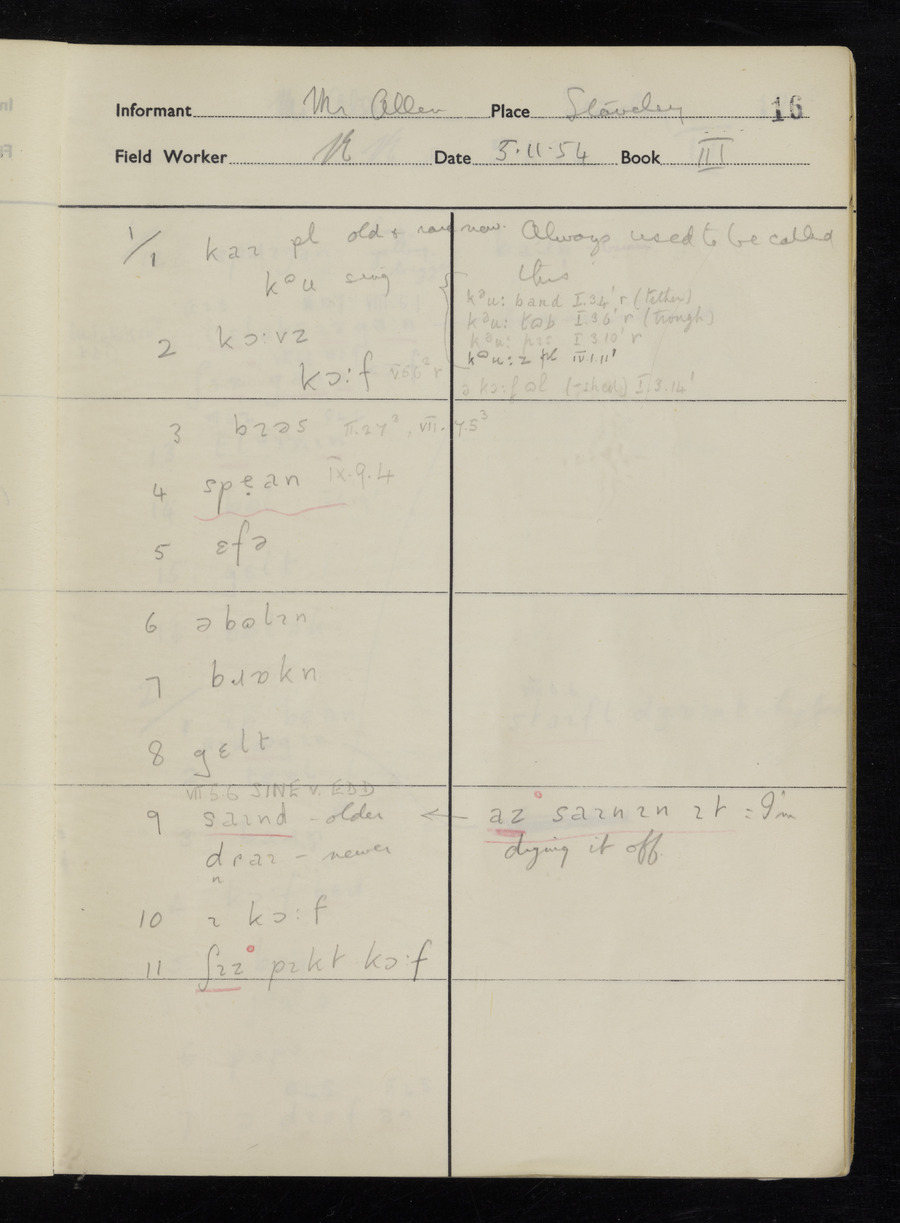 Informant Mr Allen Place Staveley 16
Field Worker Date 5.11.54 Book III
1/1 kaɪ pl old & rare now. Always used to be called
kᵊu sing this
kᵊu: band I.3.4' r (tether)
kᵊu: tɒb I.3.6' r (trough)
2 kɔ:vz
kᵊu: I 3 10' r
kᵊu: z pl IV.1.11'
kɔ:f r
ə kɔ:f (-shed) I.3.14'
3 bɪəs II.2.7³, VII. 7.5³
4 spẹan IX.9.4
5 ɛfə
6 əbɷlɪn
7 bɹɒkn
8 gɛlt
VII 5.6 SINE v. EDD
9 saɪnd - older ← az° saɪnɪn ɪt = I'm
drying it off.
dɾaɪ - newer
n
10 ɪ kɔ:f
11 ʃɪz° pɪkt kɔ:f